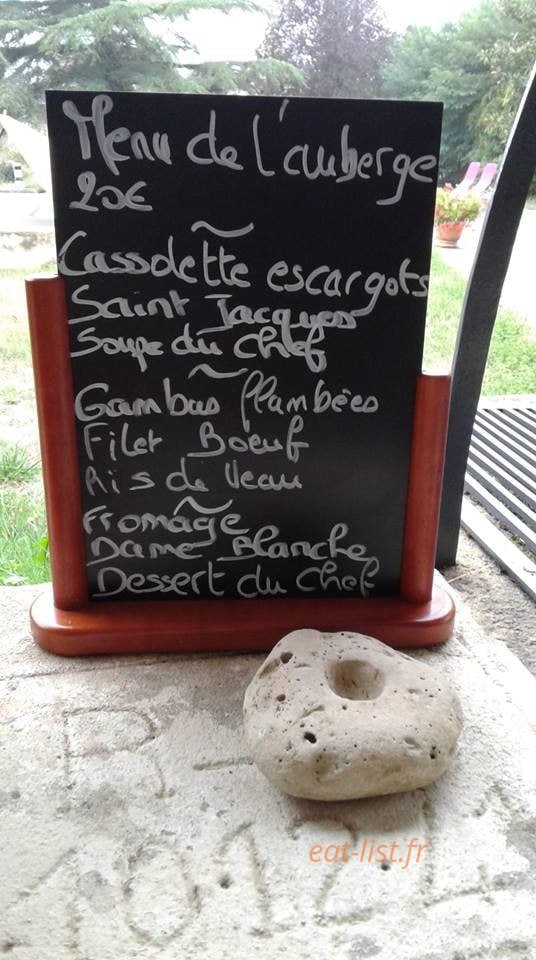 Menu de l'auberge
20€
~
Cassolette escargots
Saint Jacques
Soupe du Chef
~
Gambas flambées
Filet Boeuf
Ris de Veau
~
Fromage
Dame Blanche
Dessert du Chef
eat-list.fr